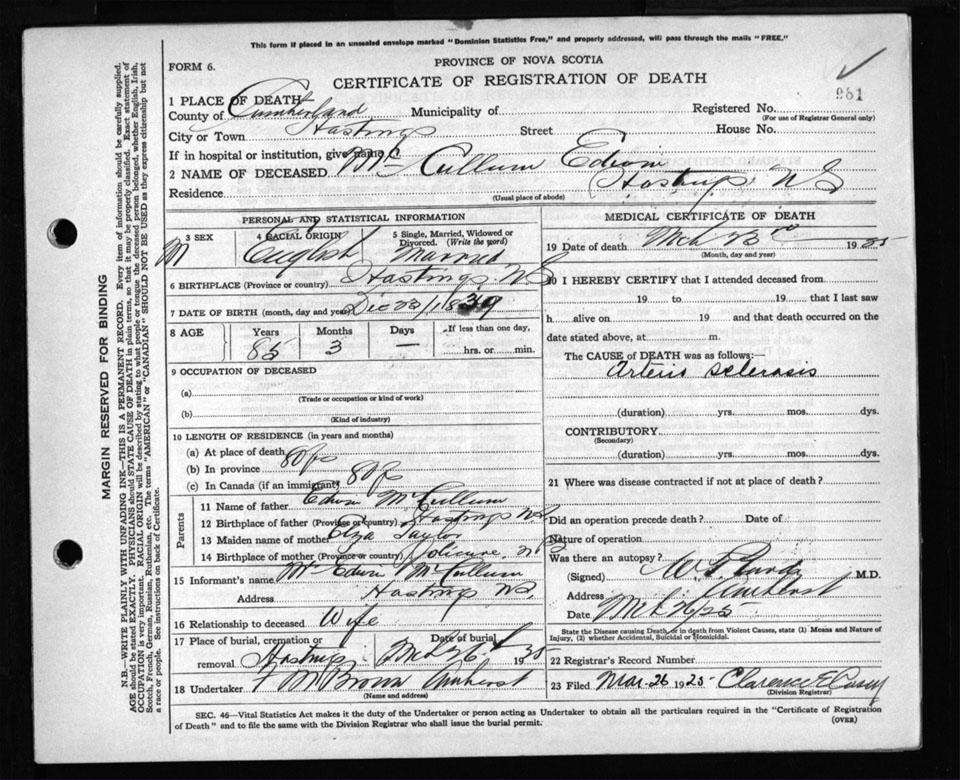 This form if placed in an unsealed envelope marked "Dominion Statistics Free," and properly addressed, will pass through the mails "FREE."
FORM 6.
PROVINCE OF NOVA SCOTIA
CERTIFICATE OF REGISTRATION OF DEATH
981
1 PLACE OF DEATH
County of Cumberland Municipality of Registered No.
(For use of Registrar General only)
City or Town Hastings Street House No.
If in hospital or institution, give name
2 NAME OF DECEASED McCullum Edwin
Residence Hastings NS
(Usual place of abode)
PERSONAL AND STATISTICAL INFORMATION
3 SEX 4 RACIAL ORIGIN 5 Single, Married, Widowed or Divorced. (Write the word)
M English Married
6 BIRTHPLACE (Province or country) Hastings NS
7 DATE OF BIRTH (month, day and year) Dec 23/1839
8 AGE Years Months Days If less than one day,
85 3 — hrs. or min.
9 OCCUPATION OF DECEASED
(a)
(Trade or occupation or kind of work)
(b)
(Kind of industry)
10 LENGTH OF RESIDENCE (in years and months)
(a) At place of death
(b) In province
(c) In Canada (if an immigrant)
Parents
11 Name of father Edwin McCullum
12 Birthplace of father (Province or country) Hastings NS
13 Maiden name of mother Taylor
14 Birthplace of mother (Province or country) Jolicure, NB
15 Informant's name Mrs Edwin McCullum
Address Hastings NS
16 Relationship to deceased Wife
17 Place of burial, cremation or removal Hastings Date of burial Mch 26th 1925
18 Undertaker Brown Amherst
(Name and address)
MEDICAL CERTIFICATE OF DEATH
19 Date of death Mch 23rd 1925
(Month, day and year)
20 I HEREBY CERTIFY that I attended deceased from
19 to 19 that I last saw
h alive on 19 and that death occurred on the
date stated above, at m.
The CAUSE OF DEATH was as follows:—
Arterio sclerosis
(duration) yrs. mos. dys.
CONTRIBUTORY
(Secondary)
(duration) yrs. mos. dys.
21 Where was disease contracted if not at place of death?
Did an operation precede death? Date of
Nature of operation
Was there an autopsy?
(Signed) M.D.
Address Amherst
Date Mch 26/25
State the Disease causing Death, or in death from Violent Causes, state (1) Means and Nature of Injury, (2) whether Accidental, Suicidal or Homicidal.
22 Registrar's Record Number
23 Filed Mar. 26 1925 Clarence E Casey
(Division Registrar)
SEC. 46—Vital Statistics Act makes it the duty of the Undertaker or person acting as Undertaker to obtain all the particulars required in the "Certificate of Registration
of Death" and to file the same with the Division Registrar who shall issue the burial permit. (OVER)
MARGIN RESERVED FOR BINDING
N.B.—WRITE PLAINLY WITH UNFADING INK—THIS IS A PERMANENT RECORD. Every item of information should be carefully supplied.
AGE should be stated EXACTLY. PHYSICIANS should STATE CAUSE OF DEATH in plain terms, so that it may be properly classified. Exact statement of
OCCUPATION is very important. RACIAL ORIGIN will be described by stating to what people or tongue the deceased person belonged, whether English, Irish,
Scotch, French, German, Russian, Ruthenian, etc. The terms "AMERICAN" or "CANADIAN" SHOULD NOT BE USED as they express citizenship but not
a race or people. See instructions on back of Certificate.